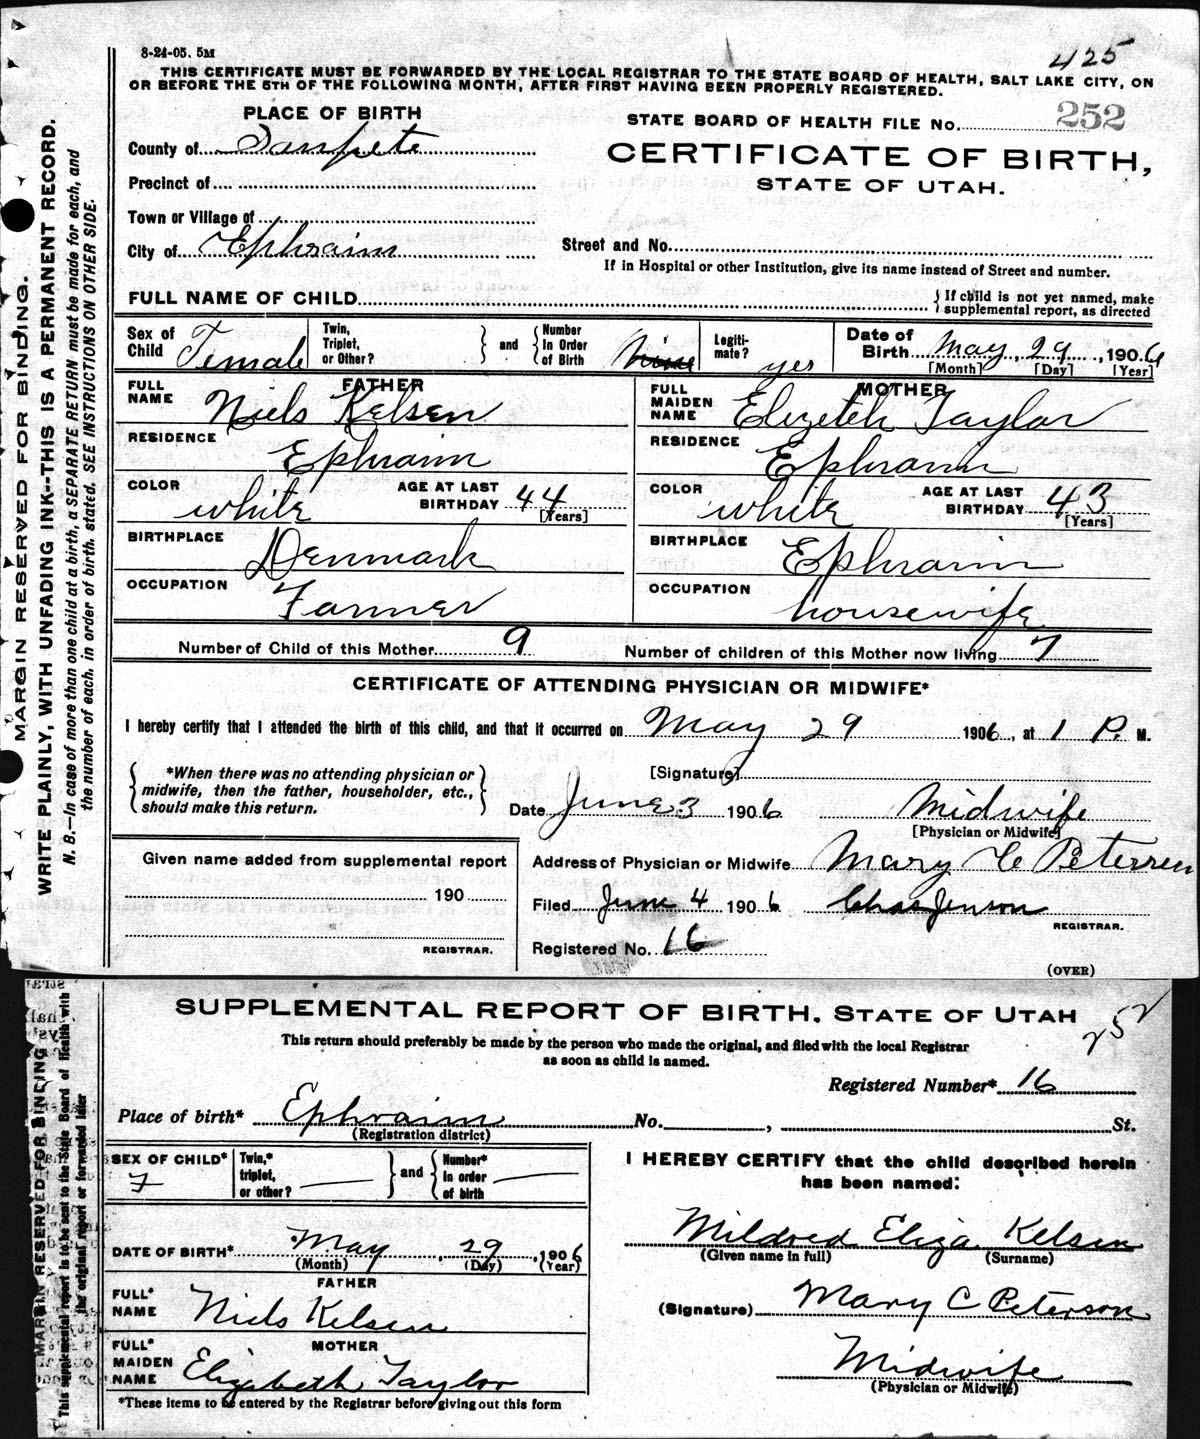 8-24-05. 5M
425
THIS CERTIFICATE MUST BE FORWARDED BY THE LOCAL REGISTRAR TO THE STATE BOARD OF HEALTH, SALT LAKE CITY, ON
OR BEFORE THE 5TH OF THE FOLLOWING MONTH, AFTER FIRST HAVING BEEN PROPERLY REGISTERED.
PLACE OF BIRTH
STATE BOARD OF HEALTH FILE No. 252
County of Sanpete
CERTIFICATE OF BIRTH,
STATE OF UTAH.
Precinct of
Town or Village of
City of Ephraim
Street and No.
If in Hospital or other Institution, give its name instead of Street and number.
FULL NAME OF CHILD
{ If child is not yet named, make
supplemental report, as directed
Sex of Child Female
Twin, Triplet, or Other? } and { Number In Order of Birth
Legiti-mate? yes
Date of Birth May, 29, 1906
[Month] [Day] [Year]
FATHER
FULL NAME Niels Kelsen
RESIDENCE Ephraim
COLOR white AGE AT LAST BIRTHDAY 44 [Years]
BIRTHPLACE Denmark
OCCUPATION Farmer
MOTHER
FULL MAIDEN NAME Elizeteh Taylor
RESIDENCE Ephraim
COLOR white AGE AT LAST BIRTHDAY 43 [Years]
BIRTHPLACE Ephraim
OCCUPATION housewife
Number of Child of this Mother 9 Number of children of this Mother now living 7
CERTIFICATE OF ATTENDING PHYSICIAN OR MIDWIFE*
I hereby certify that I attended the birth of this child, and that it occurred on May 29 1906, at 1 P. M.
{ *When there was no attending physician or
midwife, then the father, householder, etc.,
should make this return. }
[Signature]
Date June 3 1906 Midwife
[Physician or Midwife]
Given name added from supplemental report
190
REGISTRAR.
Address of Physician or Midwife Mary C Petersen
Filed June 4 1906 Chas Jenson
REGISTRAR.
Registered No. 16
(OVER)
MARGIN RESERVED FOR BINDING.
WRITE PLAINLY, WITH UNFADING INK--THIS IS A PERMANENT RECORD.
N. B.—In case of more than one child at a birth, a SEPARATE RETURN must be made for each, and
the number of each, in order of birth, stated. SEE INSTRUCTIONS ON OTHER SIDE.
SUPPLEMENTAL REPORT OF BIRTH. STATE OF UTAH
252
This return should preferably be made by the person who made the original, and filed with the local Registrar
as soon as child is named.
Registered Number* 16
Place of birth* Ephraim No. , St.
(Registration district)
SEX OF CHILD* F
Twin,* triplet, or other? } and { Number* In order of birth
DATE OF BIRTH* May, 29, 1906
(Month) (Day) (Year)
FATHER
FULL* NAME Niels Kelsen
MOTHER
FULL* MAIDEN NAME Elizabeth Taylor
*These items to be entered by the Registrar before giving out this form
I HEREBY CERTIFY that the child described herein
has been named:
Mildred Eliza Kelsen
(Given name in full) (Surname)
(Signature) Mary C Peterson
Midwife
(Physician or Midwife)
MARGIN RESERVED FOR BINDING
This supplemental report is to be sent to the State Board of Health with
the original report or forwarded later